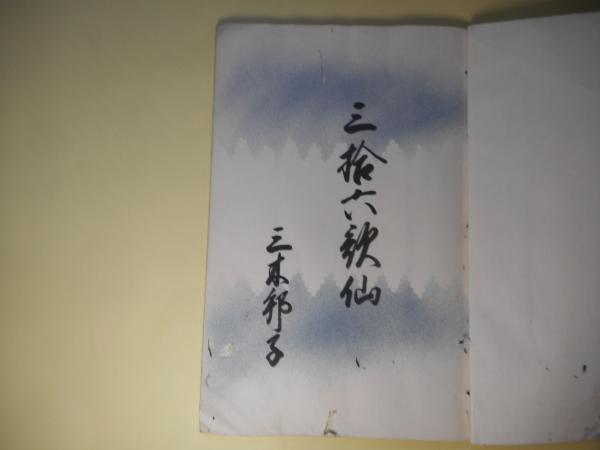 三拾六歌仙
三木邦子